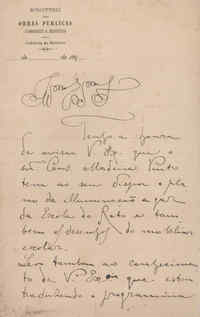 MINISTERIO
DAS
OBRAS PUBLICAS
COMMERCIO E INDUSTRIA
Gabinete do Ministro
de de 189
Tenho a honra
de avisar V. Exa. que o
Exmo Cons. Madeira Pinto
tem ao seu dispor o pla
no de illuminação a gaz
da Escola do Rato e tam
bem o desenho do mobiliario
escolar.
Levo tambem ao conhecimento
de V. Exa que estou
traduzindo o programma